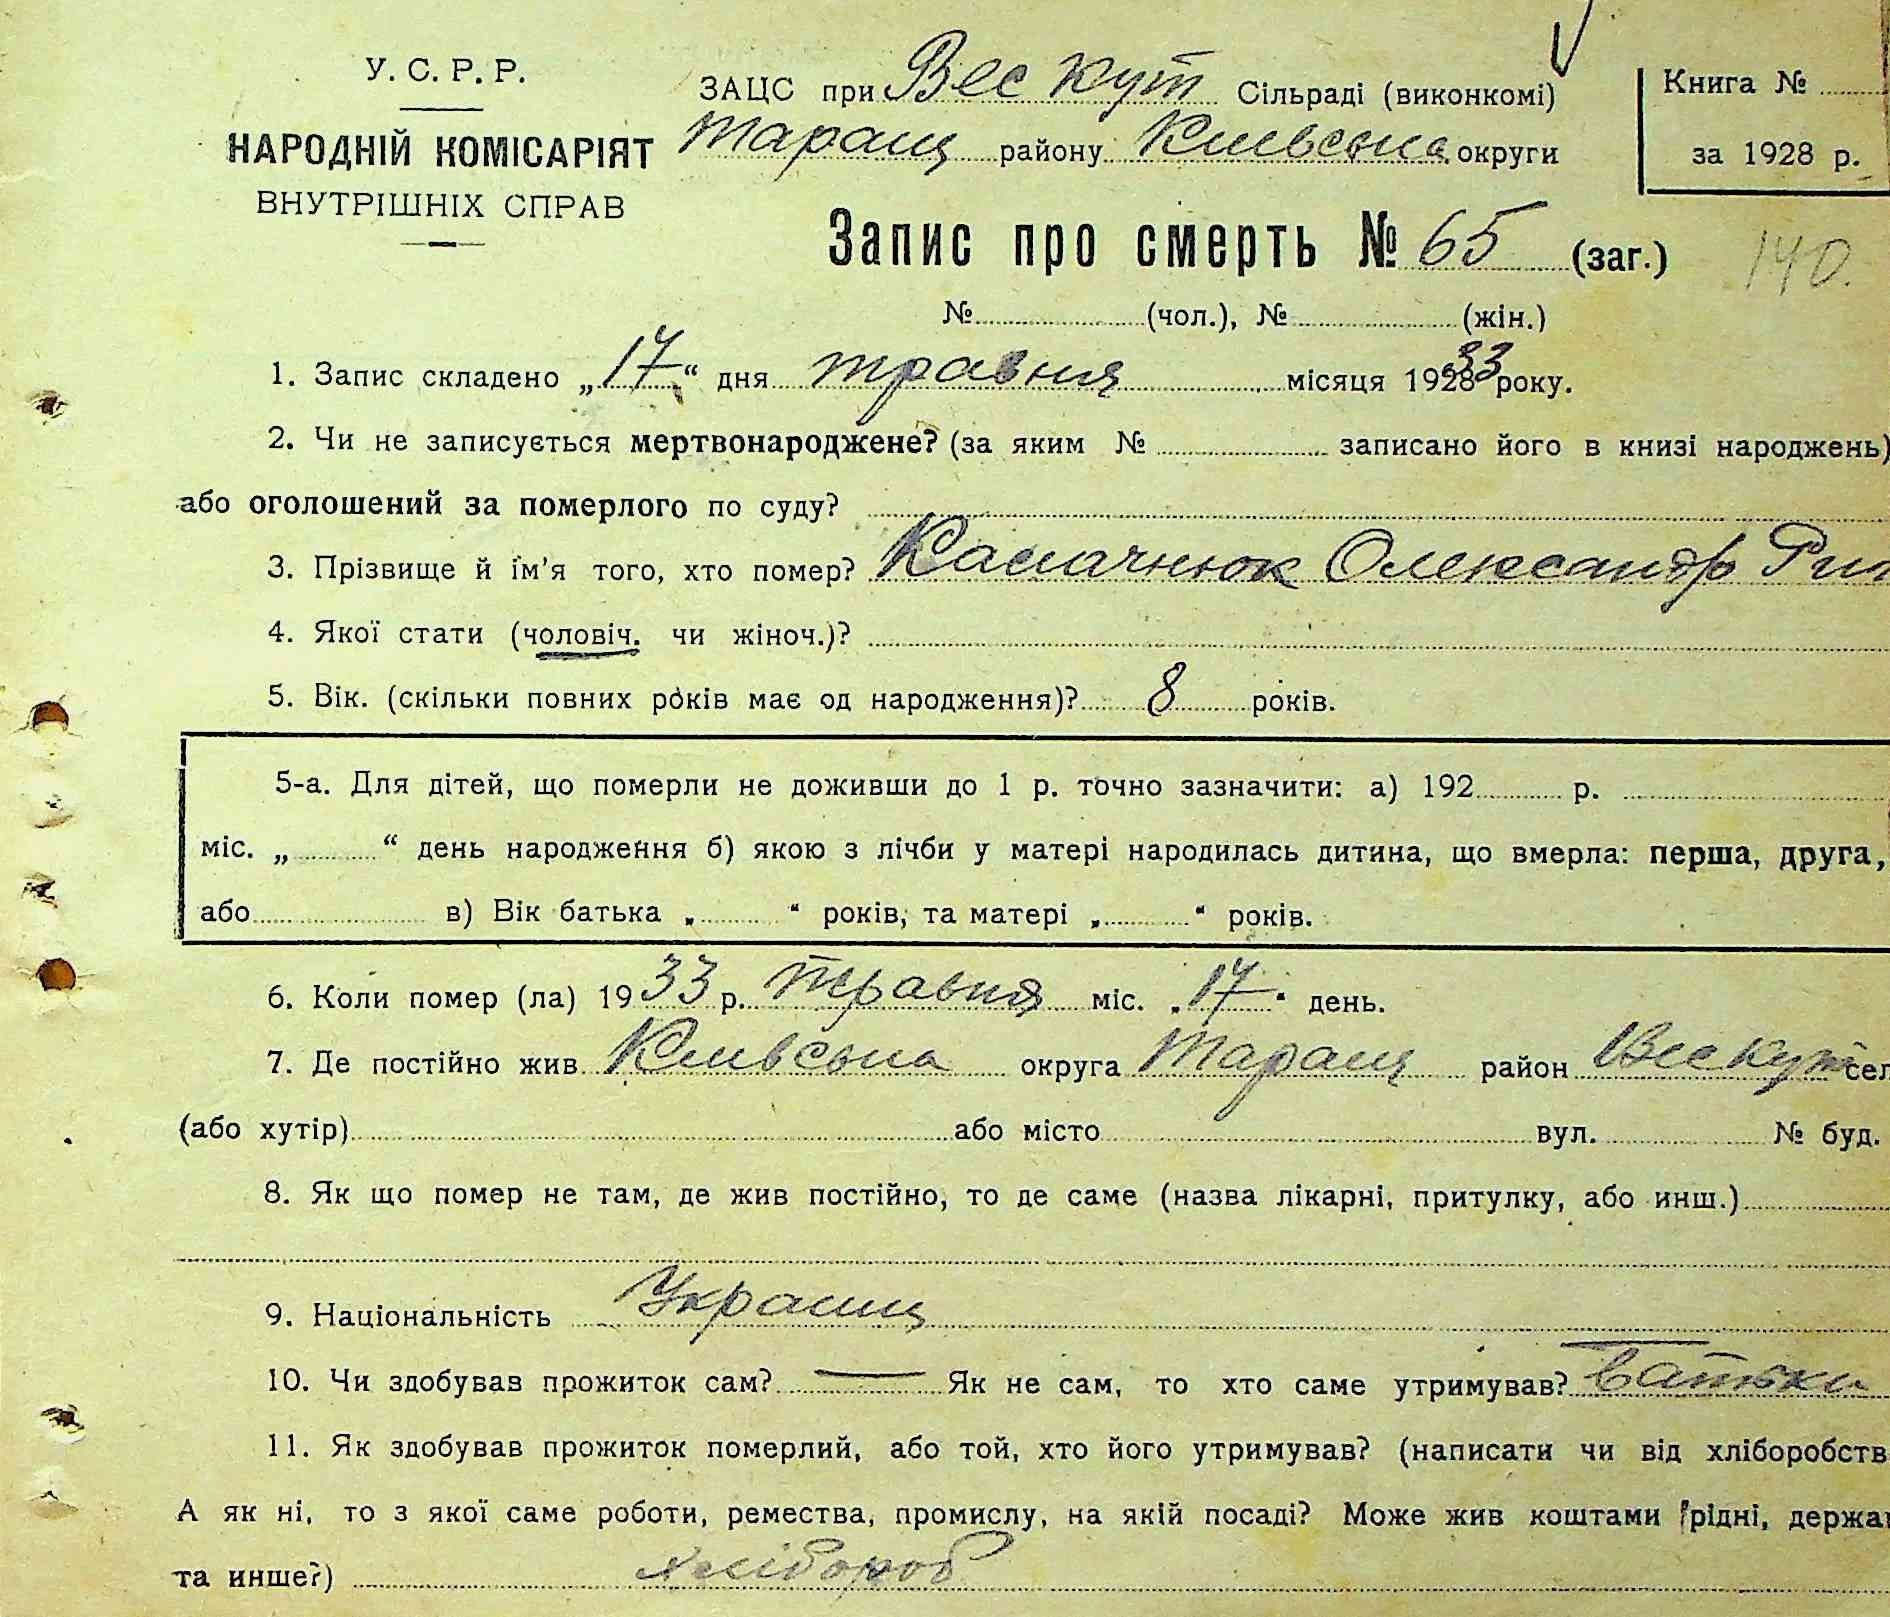 У. С. Р. Р.
НАРОДНІЙ КОМІСАРІЯТ
ВНУТРІШНІХ СПРАВ
ЗАЦС при Вес Кут Сільраді (виконкомі)
Таращ району Київська округи
Книга №
за 1928 р.
Запис про смерть № 65 (заг.)
140.
№ (чол.), № (жін.)
1. Запис складено „17“ дня травня місяця 1928 33 року.
2. Чи не записується мертвонароджене? (за яким № записано його в книзі народжень)
або оголошений за померлого по суду?
3. Прізвище й ім'я того, хто помер? Олександр
4. Якої стати (чоловіч. чи жіноч.)?
5. Вік. (скільки повних років має од народження)? 8 років.
5-а. Для дітей, що померли не доживши до 1 р. точно зазначити: а) 192 р.
міс. „ “ день народження б) якою з лічби у матері народилась дитина, що вмерла: перша, друга,
або в) Вік батька „ “ років, та матері „ “ років.
6. Коли помер (ла) 1933 р. травня міс. „17“ день.
7. Де постійно жив Київська округа Таращ район Вес кут сел
(або хутір) або місто вул. № буд.
8. Як що помер не там, де жив постійно, то де саме (назва лікарні, притулку, або инш.)
9. Національність Украинц
10. Чи здобував прожиток сам? — Як не сам, то хто саме утримував? Батьки
11. Як здобував прожиток померлий, або той, хто його утримував? (написати чи від хліборобств
А як ні, то з якої саме роботи, ремества, промислу, на якій посаді? Може жив коштами рідні, держав
та инше?) хлібороб